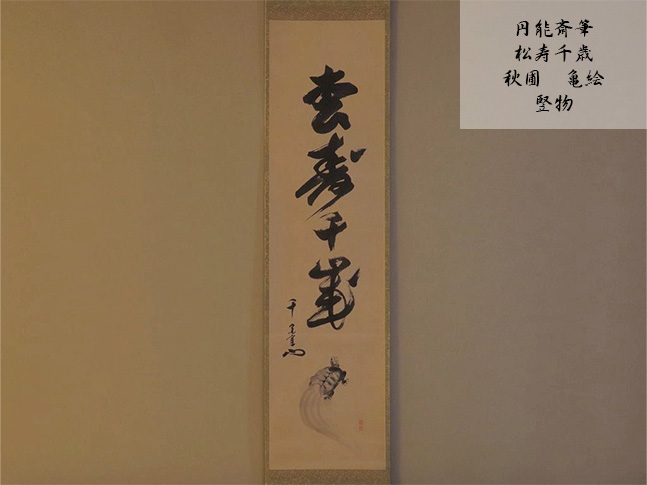 円能斎筆
松寿千歳
秋圃　亀絵
竪物
松寿千歳